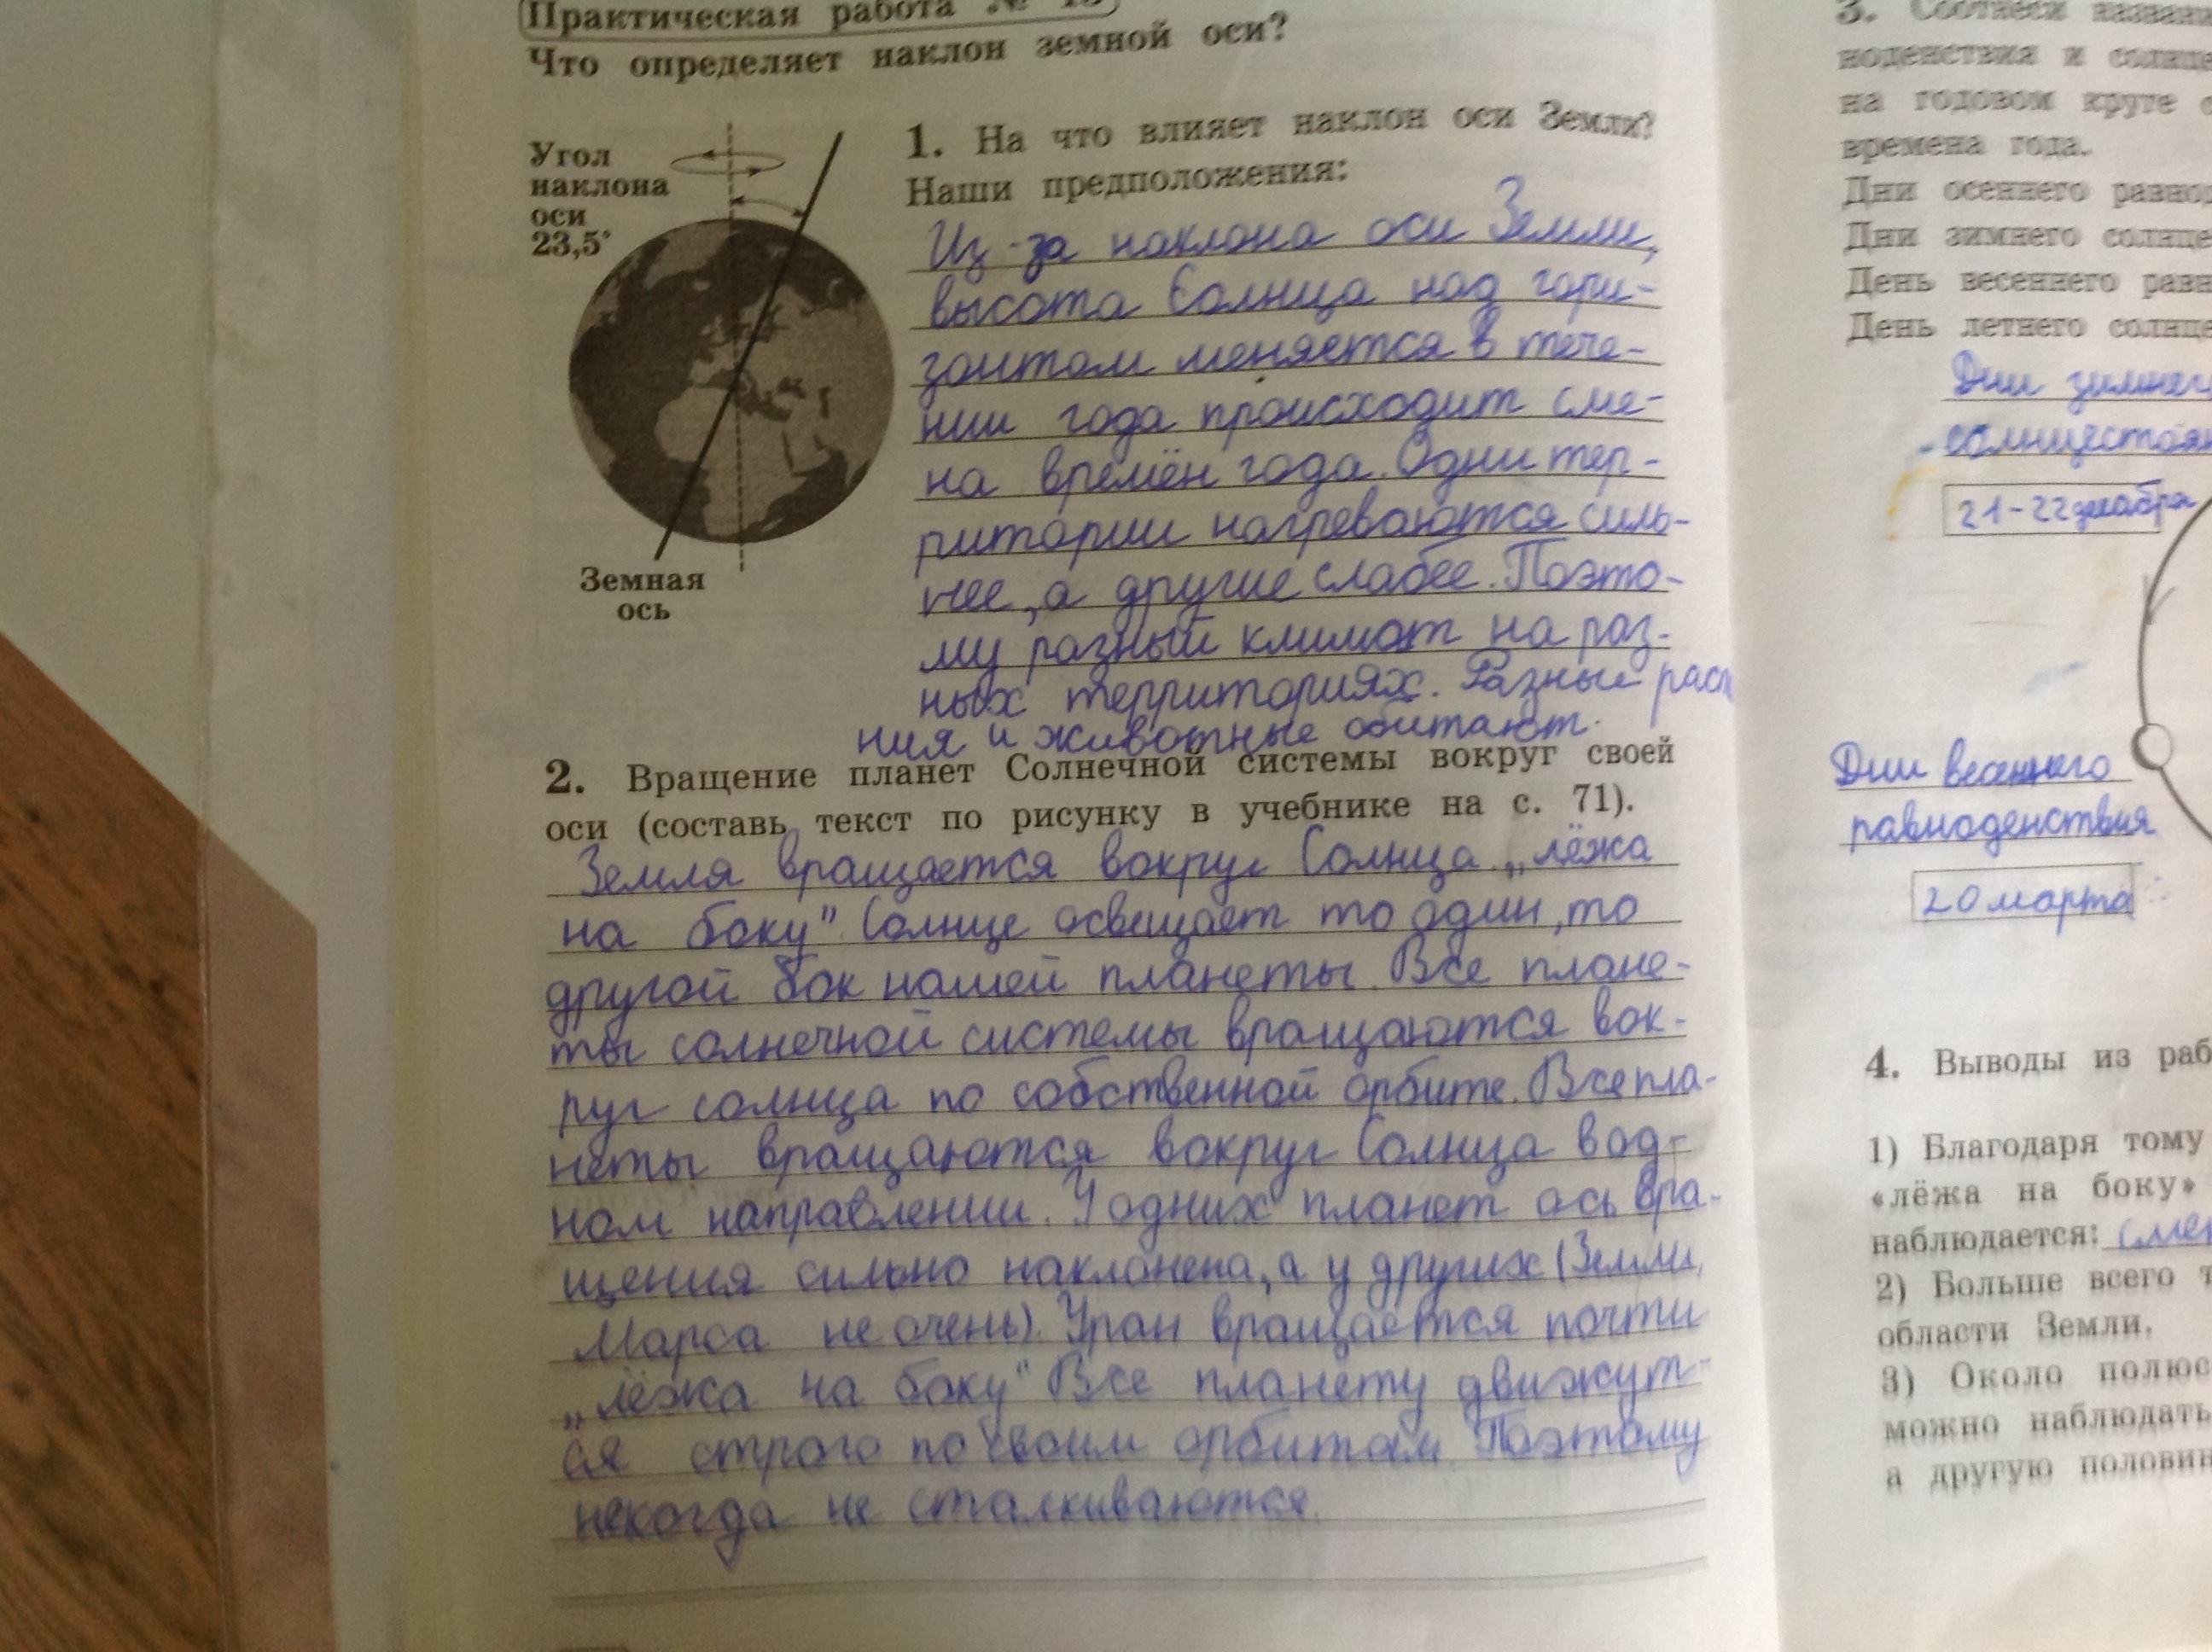 Практическая работа №
Что определяет наклон земной оси?
Угол
наклона
оси
23,5°
Земная
ось
1. На что влияет наклон оси Земли?
Наши предположения:
Из-за наклона оси Земли,
высота Солнца над гори-
зонтом меняется в тече-
нии года происходит сме-
на времён года. Одни тер-
ритории нагреваются силь-
нее, а другие слабее. Поэто-
му разный климат на раз-
ных территориях. Разные раст
ния и животные обитают.
2. Вращение планет Солнечной системы вокруг своей
оси (составь текст по рисунку в учебнике на с. 71).
Земля вращается вокруг Солнца „лёжа
на боку". Солнце освещает то один, то
другой бок нашей планеты. Все плане-
ты солнечной системы вращаются вок-
руг солнца по собственной орбите. Все пла-
неты вращаются вокруг Солнца в од-
ном направлении. У одних планет ось вра-
щения сильно наклонена, а у других (Земли,
Марса не очень). Уран вращается почти
„лёжа на боку" Все планету движут-
ся строго по своим орбитам. Поэтому
некогда не сталкиваются.
3. Соотнеси назван
ноденствия и солнце
на годовом круге
времена года.
Дни осеннего равно
Дни зимнего солнце
День весеннего равн
День летнего солнце
Дни зимнего
солнцестоян
21-22 декабря
Дни весеннего
равноденствия
20 марта
4. Выводы из раб
1) Благодаря тому
«лёжа на боку»
наблюдается: смен
2) Больше всего т
области Земли,
3) Около полюс
можно наблюдать
а другую половин